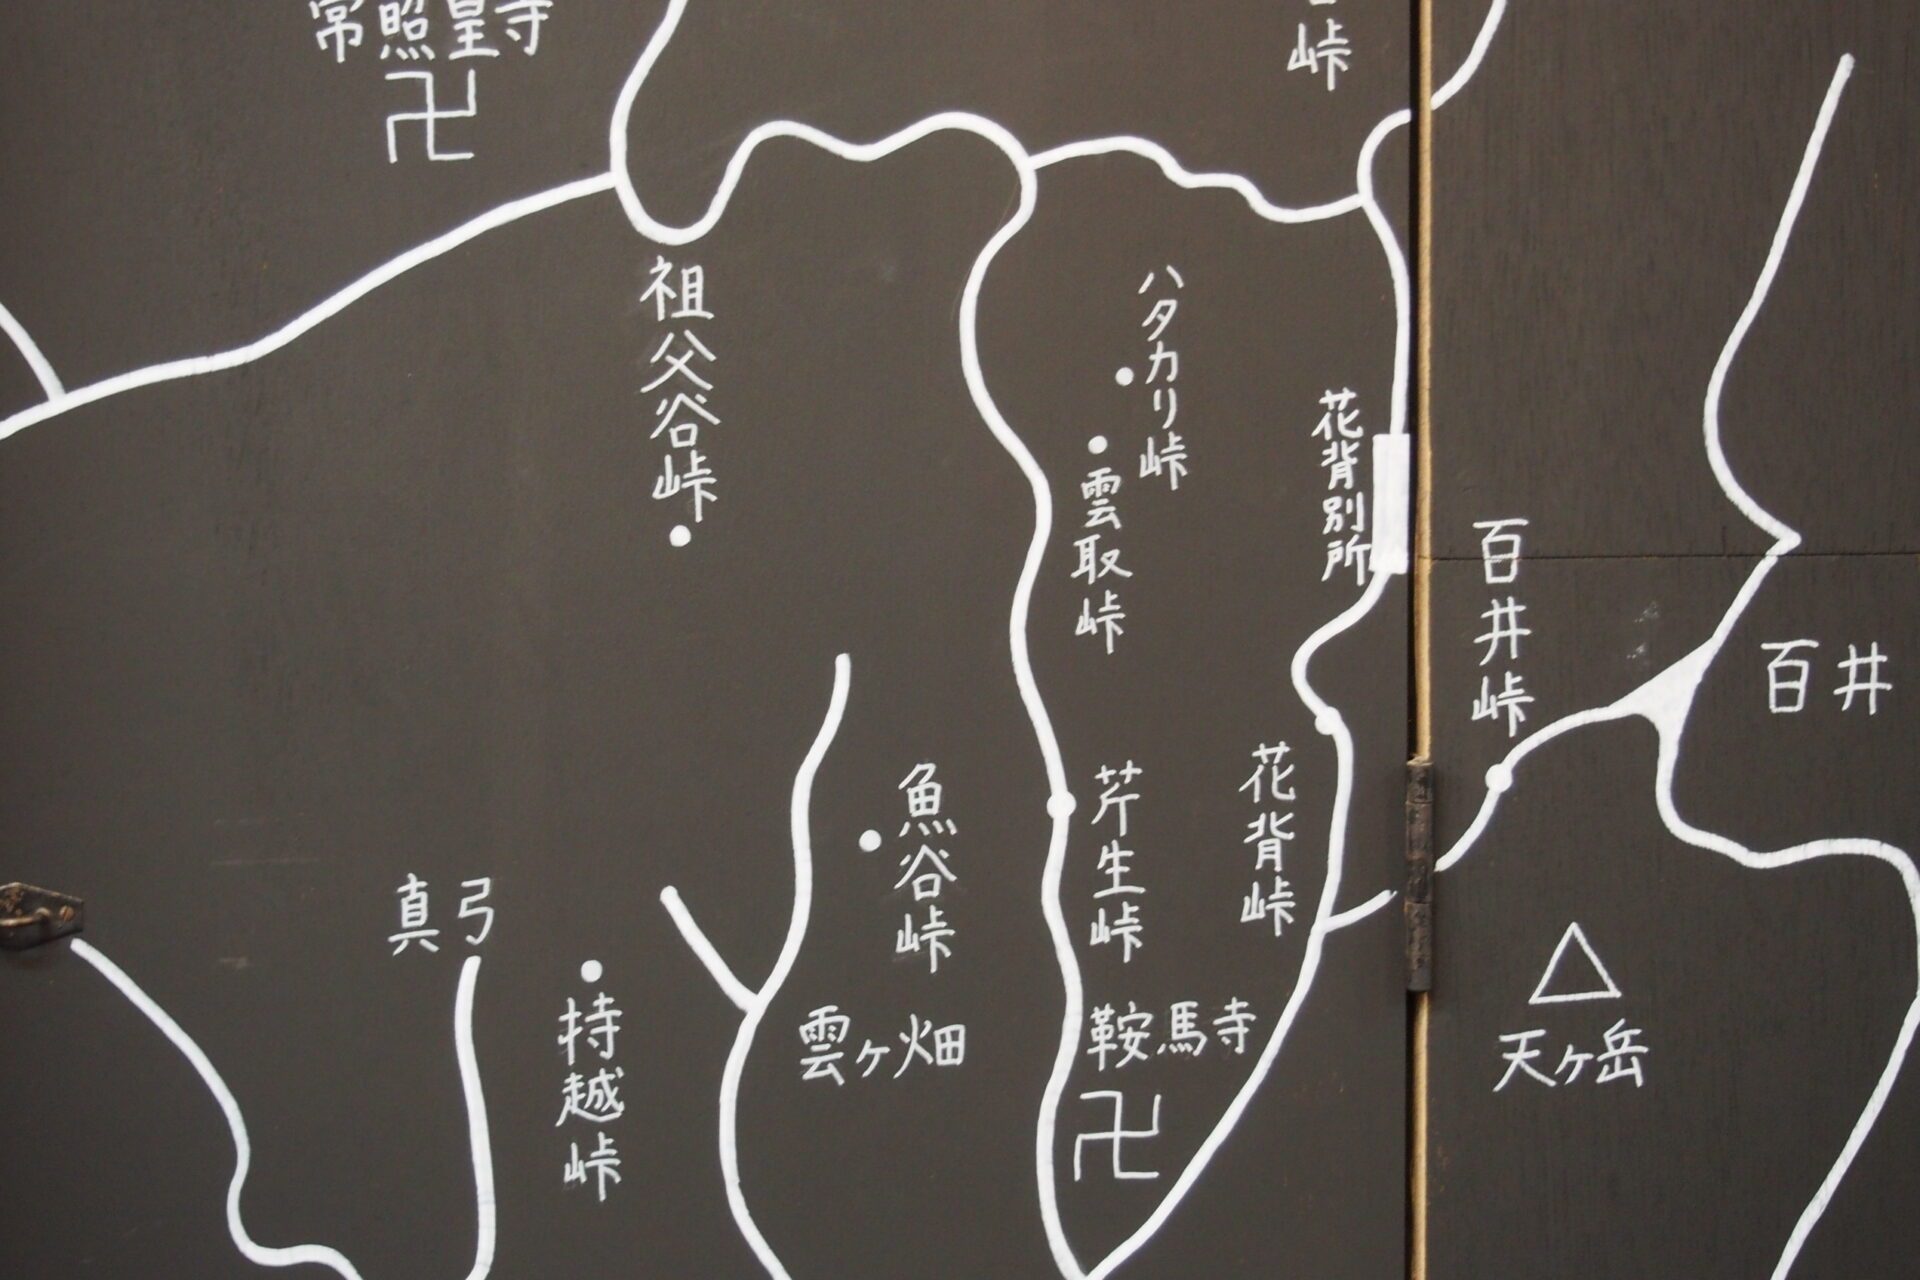 常照皇寺
卍
峠
祖父谷峠
ハタカリ峠
雲取峠
花背別所
百井峠
百井
魚谷峠
芹生峠
花背峠
真弓
持越峠
雲ヶ畑
鞍馬寺
卍
天ヶ岳